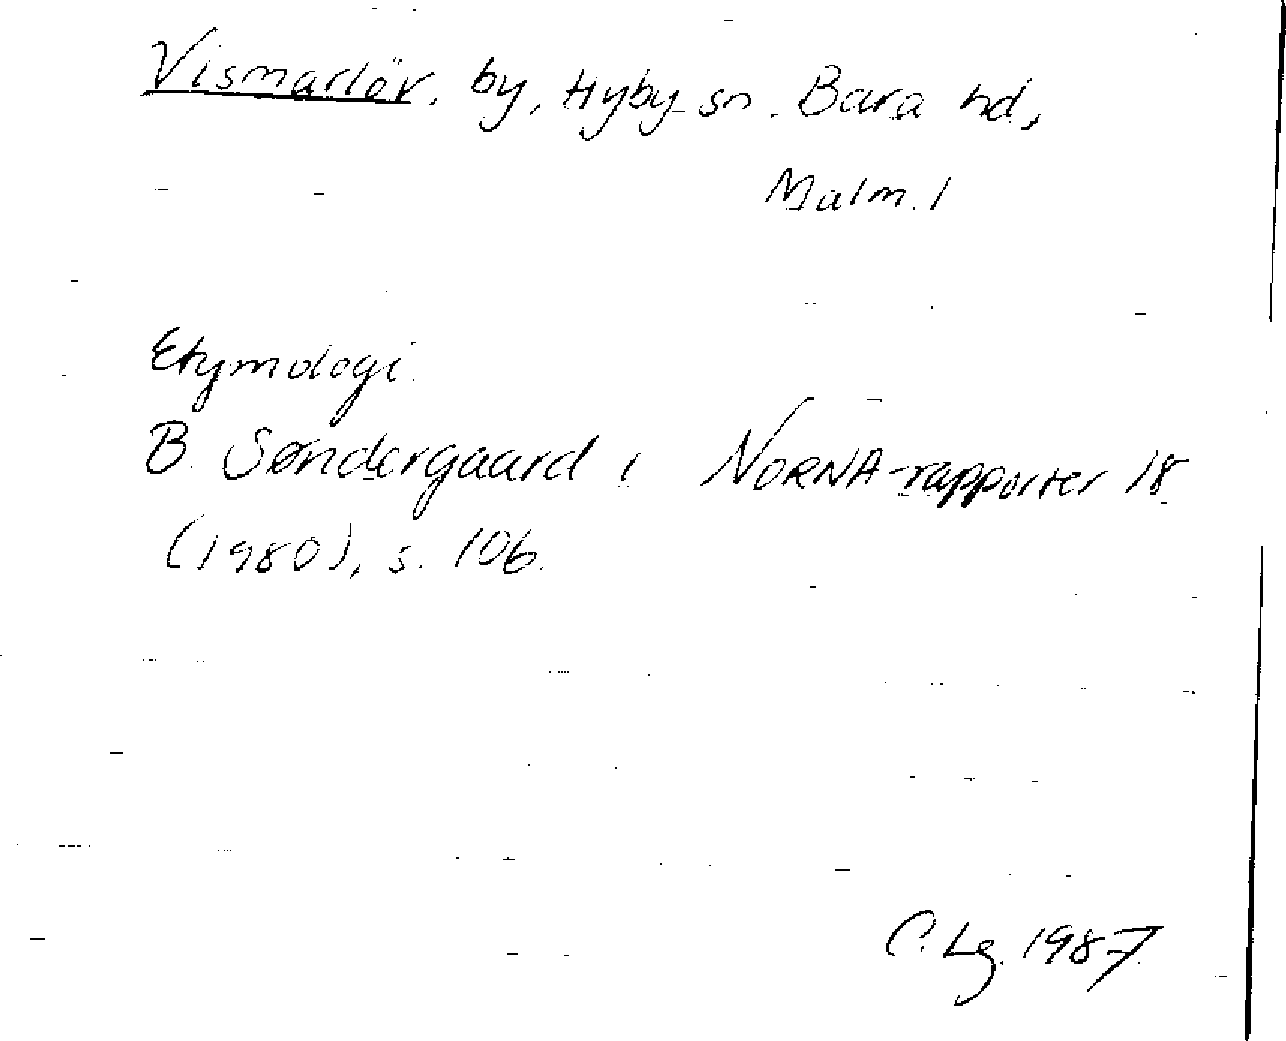 Vismarlöv, by, Hyby sn. Bara hd,
Malm. l
Etymologi.
B. Søndergaard i NORNA-rapporter 18
(1980), s. 106.
C. Lg. 1987